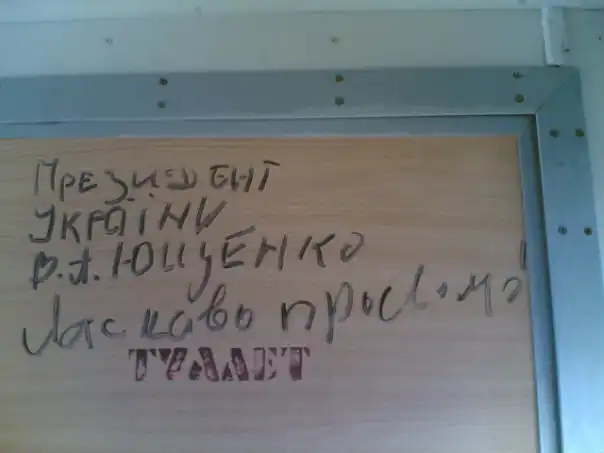 Президент
України
В.А. Ющенко
Ласкаво просимо!
ТУАЛЕТ